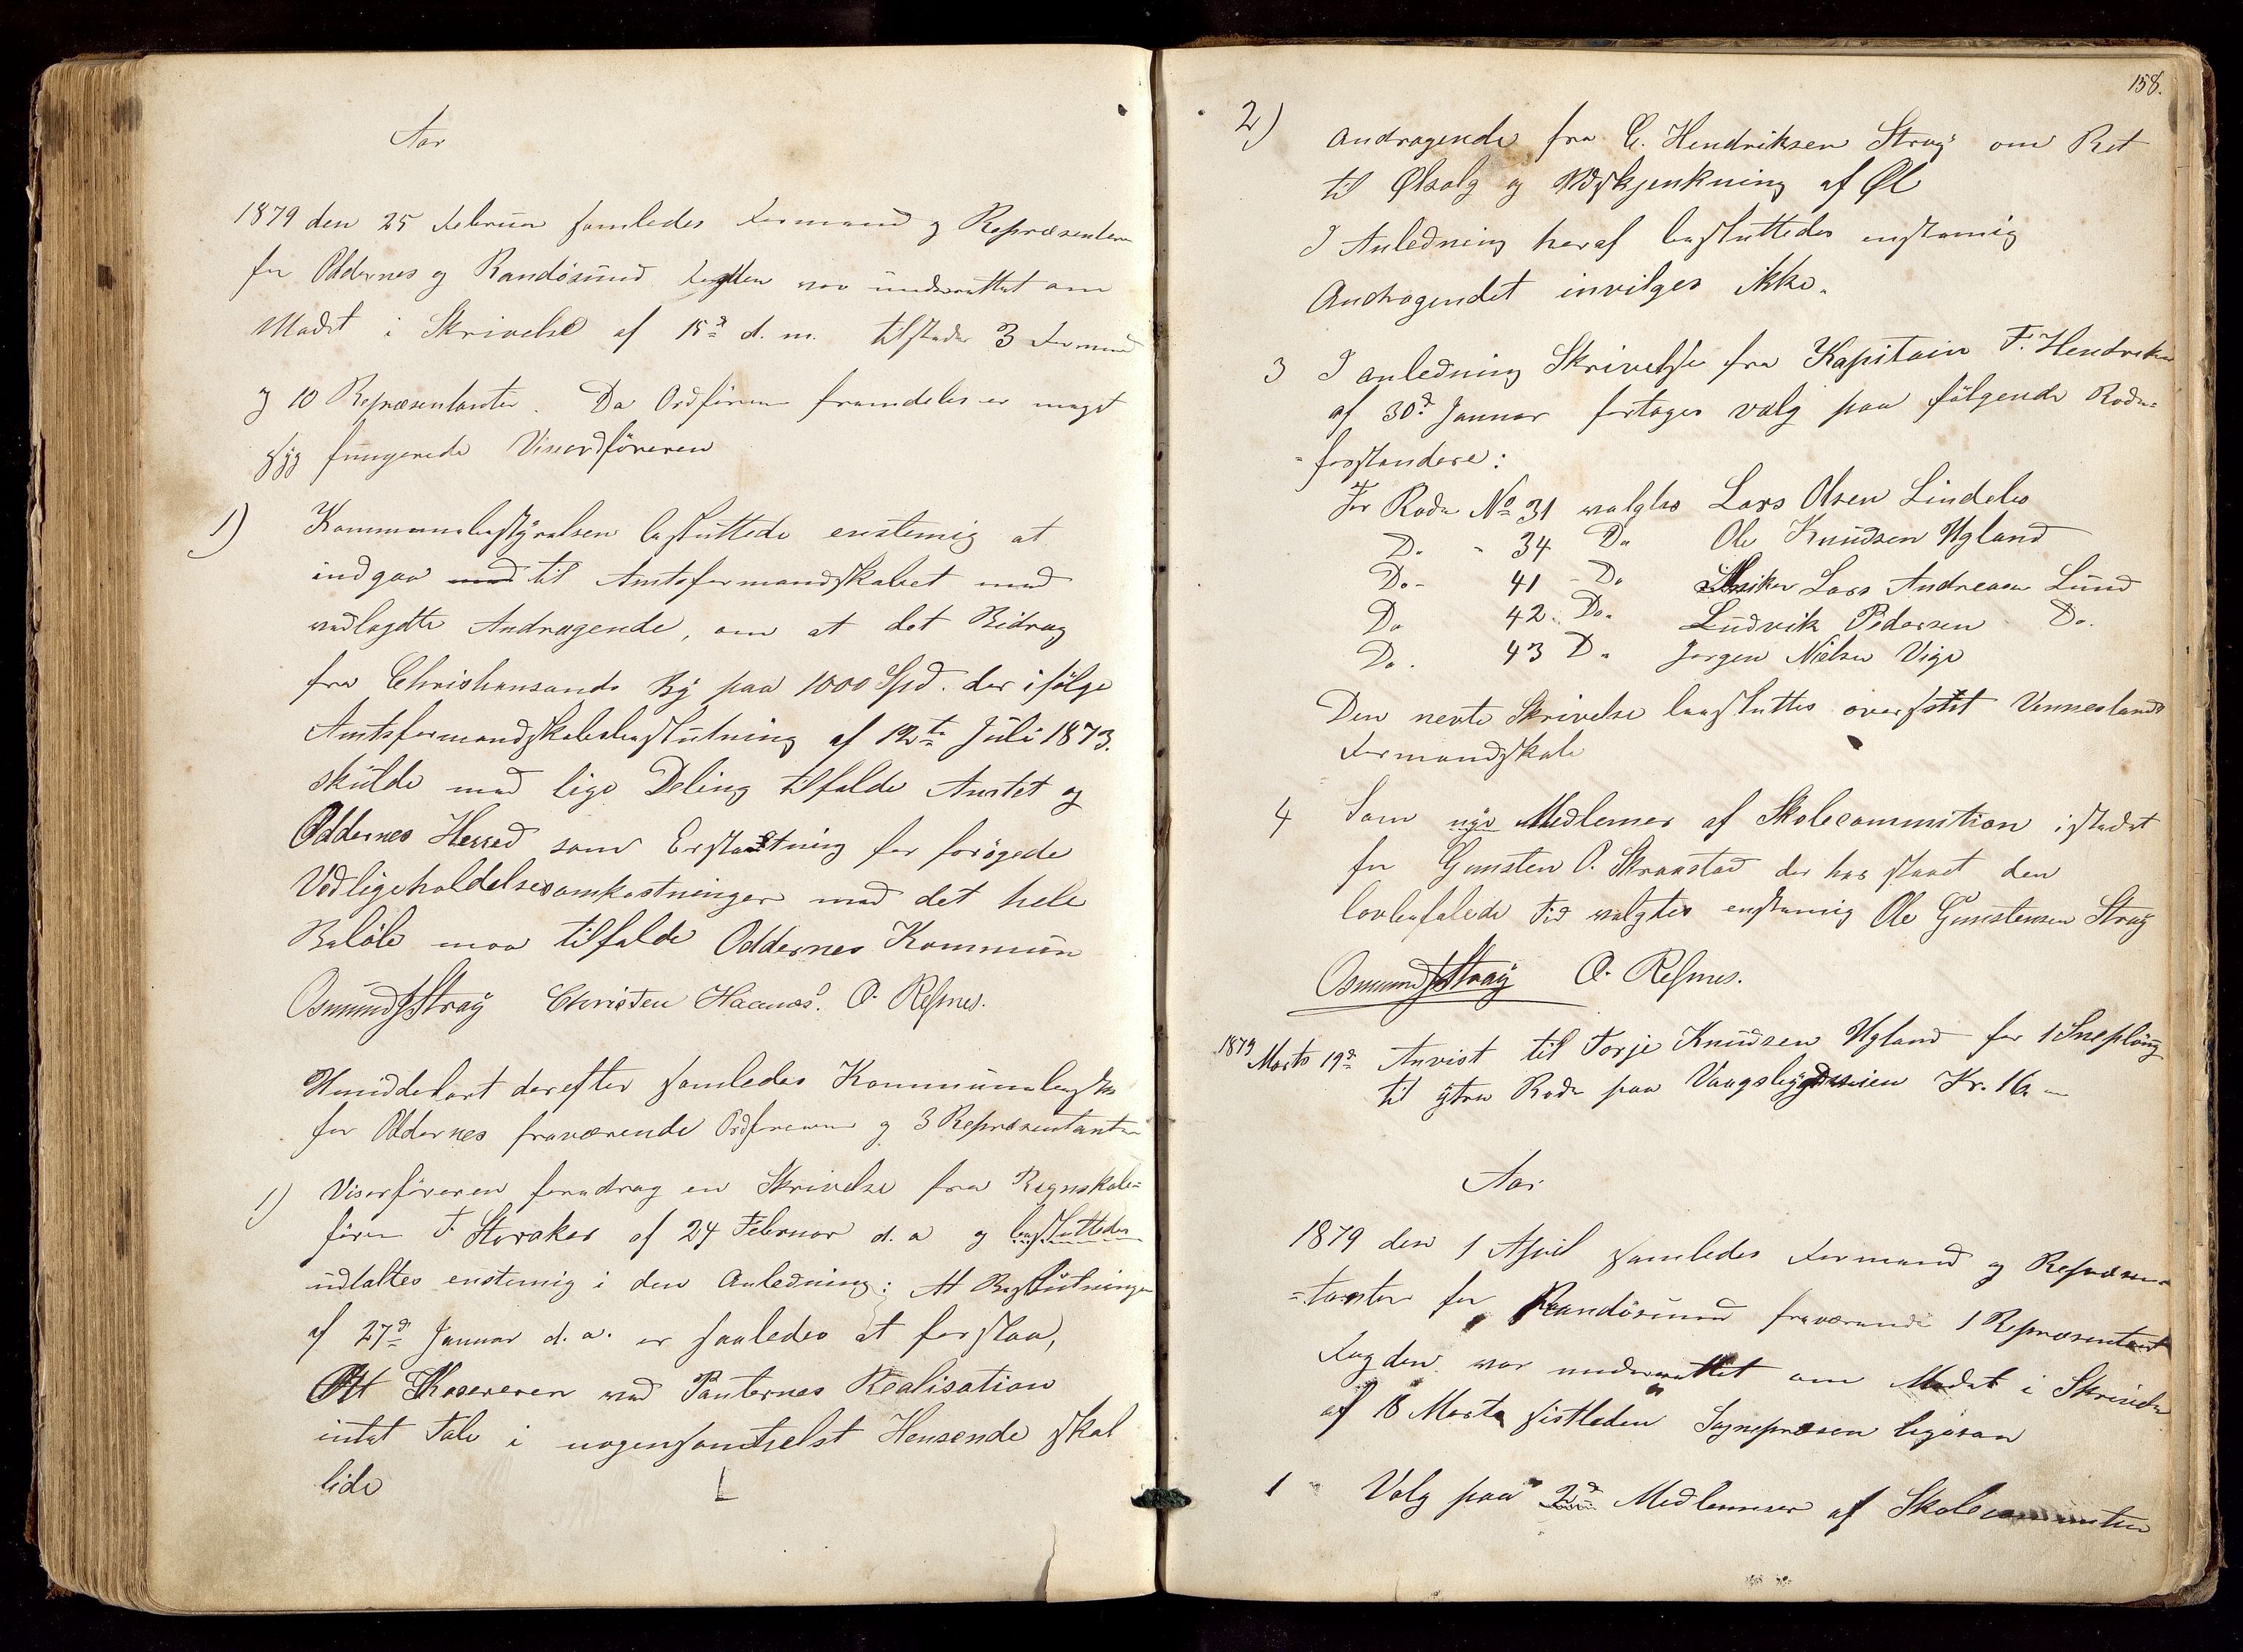 Aar
1879 den 25 Februar samledes Formænd og Repræsentern
for Oddernes og Randösund Fogden var underrettet om
Mødet i Skrivelse af 15d d. m. tilstede 3 Formænd
og 10 Repræsentanter. Da Ordföreren fremdeles er meget
syg fungerede Viseordföreren
1) Kommunebestyrelsen besluttede enstemig at
indgaa med til Amtsformandskabet med
vedlagdte Andragende, om at det Bidrag
fra Christiansands By paa 1000 Spd. der ifölge
Amtsformandskabsbeslutning af 12te Juli 1873.
skulde med lige Deling tilfalde Amtet og
Oddernes Herred som Erstatning for forögede
Vedligeholdelsesomkostninger med det hele
Belöb maa tilfalde Oddernes Kommun
Osmund Stray Christen Haanes. O. Refsnes.
Umiddelbart derefter samledes Kommunebest
for Oddernes fraværende Ordföreren og 3 Repræsentanter
1) Viseorföreren foredrag en Skrivelse fra Regnskabs=
förer F. Storaker af 24 Februar d. a og besluttedes
udtaltes enstemig i den Anledning: At Beslutningen
af 27d Januar d. a. er saaledes at forstaa,
At Kasereren ved Panternes Realisation
intet Tab i nogensomhelst Hensende skal
lide
158.
2) Andragende fra C. Hendriksen Stray om Ret
til Ølsalg og Udskjenkning af Øl
I Anledning heraf besluttedes enstemig
Andragendet invilges ikke.
3 I anledning Skrivelse fra Kapitain F. Hendriksen
af 30d Januar fortages valg paa fölgende Rode=
=forstandere:
For Rode No 31 valgtes Lars Olsen Lindebo
Do " 34 Do Ole Knudsen Ugland
Do - 41 - Do Lars Andreasen Lund
Do 42 Do. Ludvik Pedersen Do.
Do. 43 Do Jørgen Nielsen Vige
Den nevte Skrivelse besluttes oversent Venneslands
Formandskab
4 Som nye Medlemer af Skolecommition istedet
for Gunsten O. Straastad der har staaet den
lovbefalede Tid valgtes enstemig Ole Gunstensen Stray
Osmund Stray O. Refsnes.
1879 Marts 19d Anvist til Torje Knudsen Ugland for 1 Sneplöug
til ytre Rode paa Vaagsbygdveien Kr. 16. -
Aar
1879 den 1 April samledes Formænd og Repræsen
=tanter for Randösund fraværende 1 Repræsentant
Fogden var underrettet om Mödet i Skrivelse
af 18 Marts sistleden Sognepræsten ligesaa
1 Valg paa 2d Medlemmer af Skolecommition